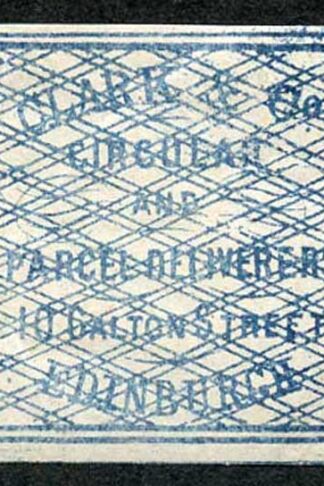 CLARK & Co
CIRCULAR
AND
PARCEL DELIVERER
10 GALTON STREET
EDINBURGH